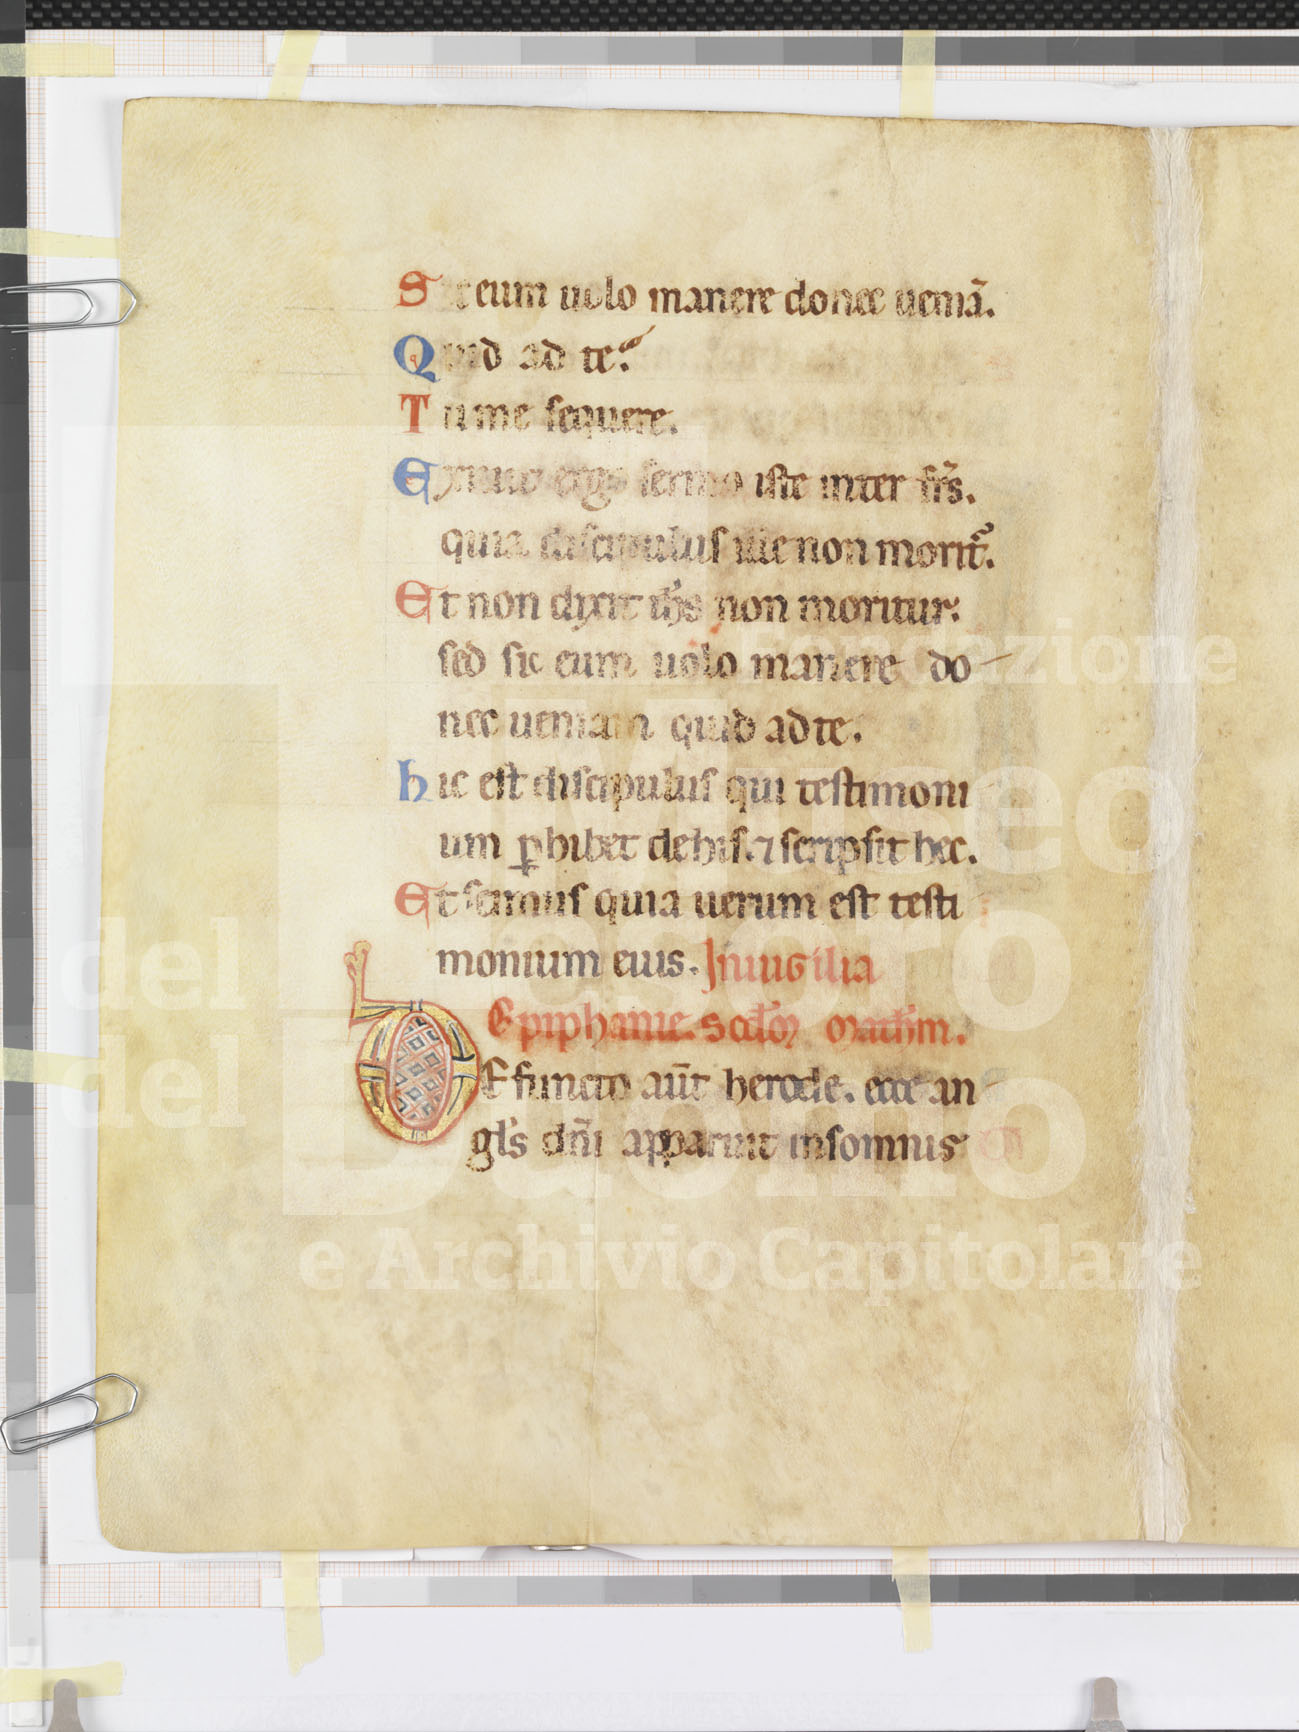 Sic eum uolo manere donec ueniã.
Quid ad te?
Tu me sequere.
Exiuit ergo sermo iste inter frs̃.
quia discipulus ille non morit᷑.
Et non dixit ih̃s non moritur:
sed sic eum uolo manere do
nec ueniam quid ad te.
hic est discipulus qui testimoni
um ꝑhibet de his. ⁊ scripsit hec.
Et scimus quia uerum est testi
monium eius. In uigilia
Epiphanie. scd̃m matħm.
DEfuncto aũt herode. ecce an
gl̃s dñi apparuit in somnis
Fondazione
Museo
del Tesoro
del Duomo
e Archivio Capitolare